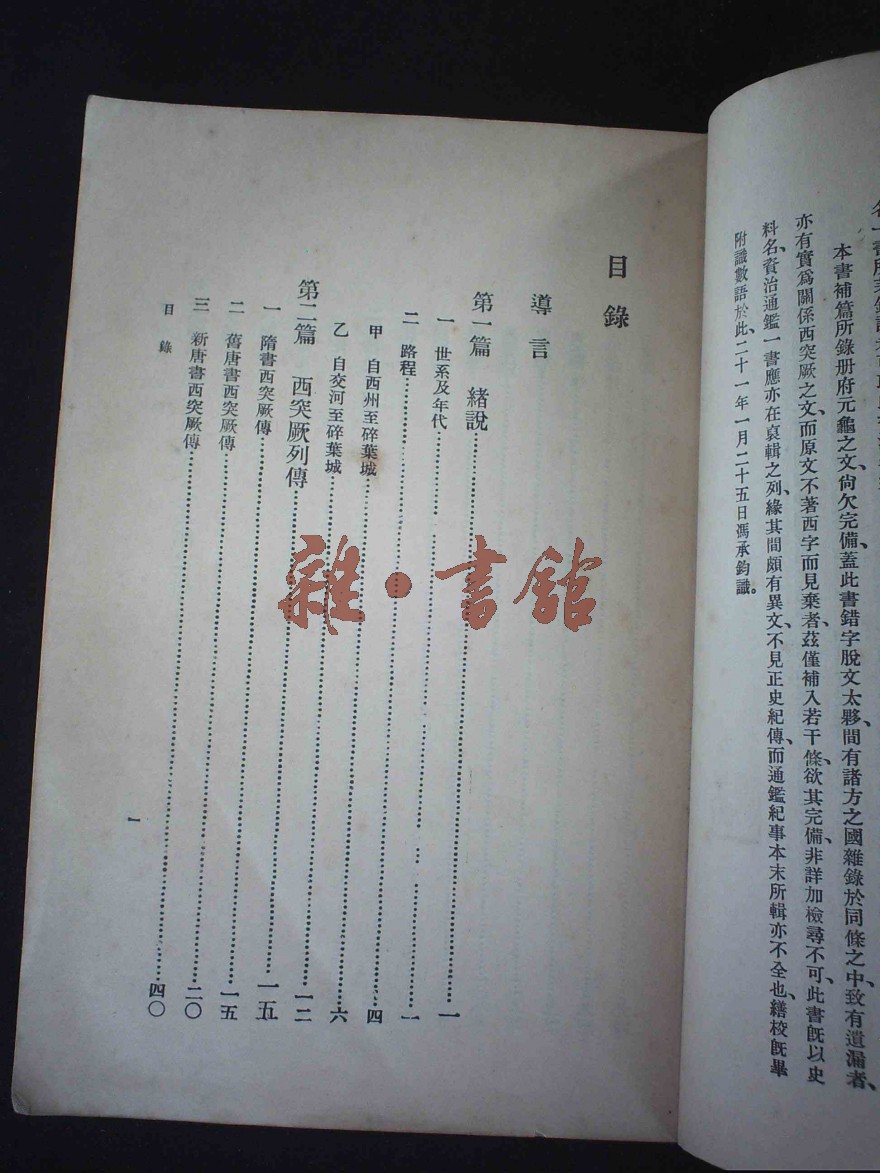 本書補篇所錄册府元龜之文、尚欠完備、蓋此書錯字脫文太夥、間有諸方之國雜錄於同條之中、致有遺漏者、
亦有實爲關係西突厥之文、而原文不著西字而見棄者、茲僅補入若干條、欲其完備、非詳加檢尋不可、此書旣以史
料名、資治通鑑一書應亦在裒輯之列、緣其間頗有異文、不見正史紀傳、而通鑑紀事本末所輯亦不全也、繕校旣畢
附識數語於此、二十一年一月二十五日馮承鈞識。
目錄
導言
第一篇 緒說……一
一 世系及年代……一
二 路程……四
甲 自西州至碎葉城……六
乙 自交河至碎葉城……一二
第二篇 西突厥列傳……一五
一 隋書西突厥傳……一五
二 舊唐書西突厥傳……二〇
三 新唐書西突厥傳……四〇
目錄
一
雜·書館